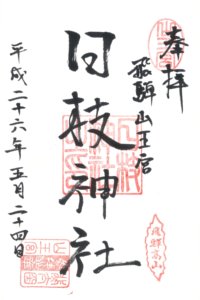 奉拝
飛騨山王宮
日枝神社
平成二十六年五月二十四日
飛騨高山